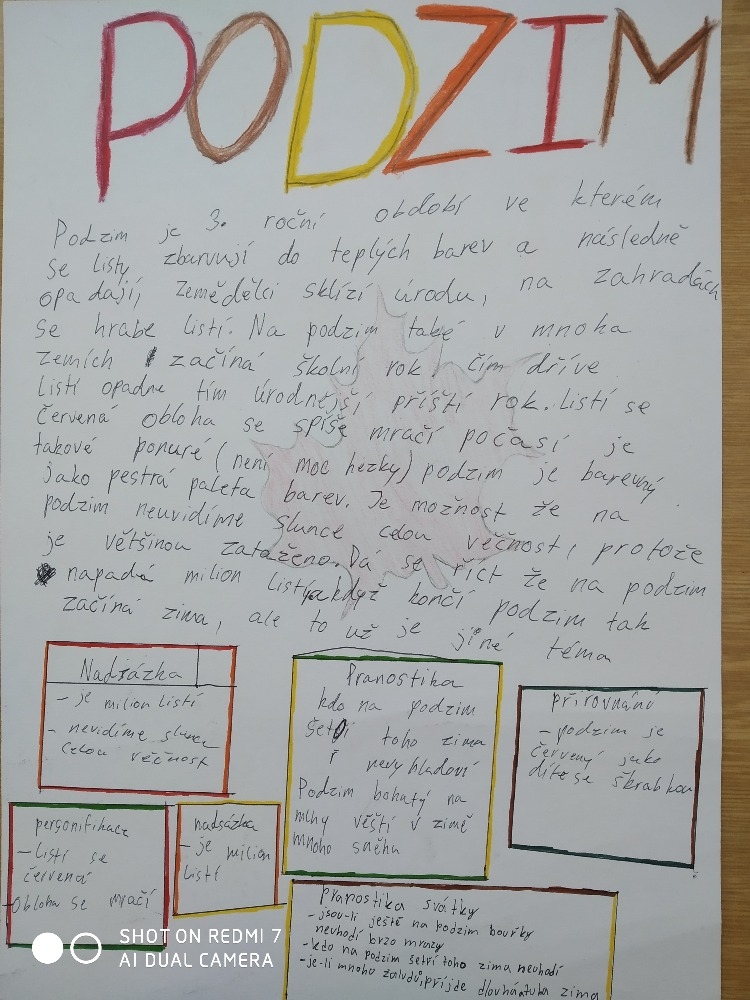 PODZIM
Podzim je 3. roční období ve kterém
se listy zbarvují do teplých barev a následně
opadají, Zemědělci sklízí úrodu, na zahradách
se hrabe listí. Na podzim také v mnoha
zemích začíná školní rok. čím dříve
listí opadne tím úrodnější příští rok. Listí se
červená obloha se spíše mračí počasí je
takové ponuré (není moc hezky) podzim je barevný
jako pestrá paleta barev. Je možnost že na
podzim neuvidíme slunce celou věčnost, protože
je většinou zataženo. Dá se říct že na podzim
napadá milion listů a když končí podzim tak
začíná zima, ale to už je jiné téma
Nadsázka
- je milion listí
- nevidíme slunce
celou věčnost
Pranostika
kdo na podzim
šetří toho zima
nevyhladoví
Podzim bohatý na
mlhy věští v zimě
mnoho sněhu
přirovnání
- podzim je
červený jako
dítě se škrabkou
personifikace
- listí se
červená
- obloha se mračí
nadsázka
- je milion
listí
Pranostika svátky
- jsou-li ještě na podzim bouřky
neuhodí brzo mrazy
- kdo na podzim šetří toho zima neuhodí
- je-li mnoho žaludů, příjde dlouhá tuha zima
SHOT ON REDMI 7
AI DUAL CAMERA